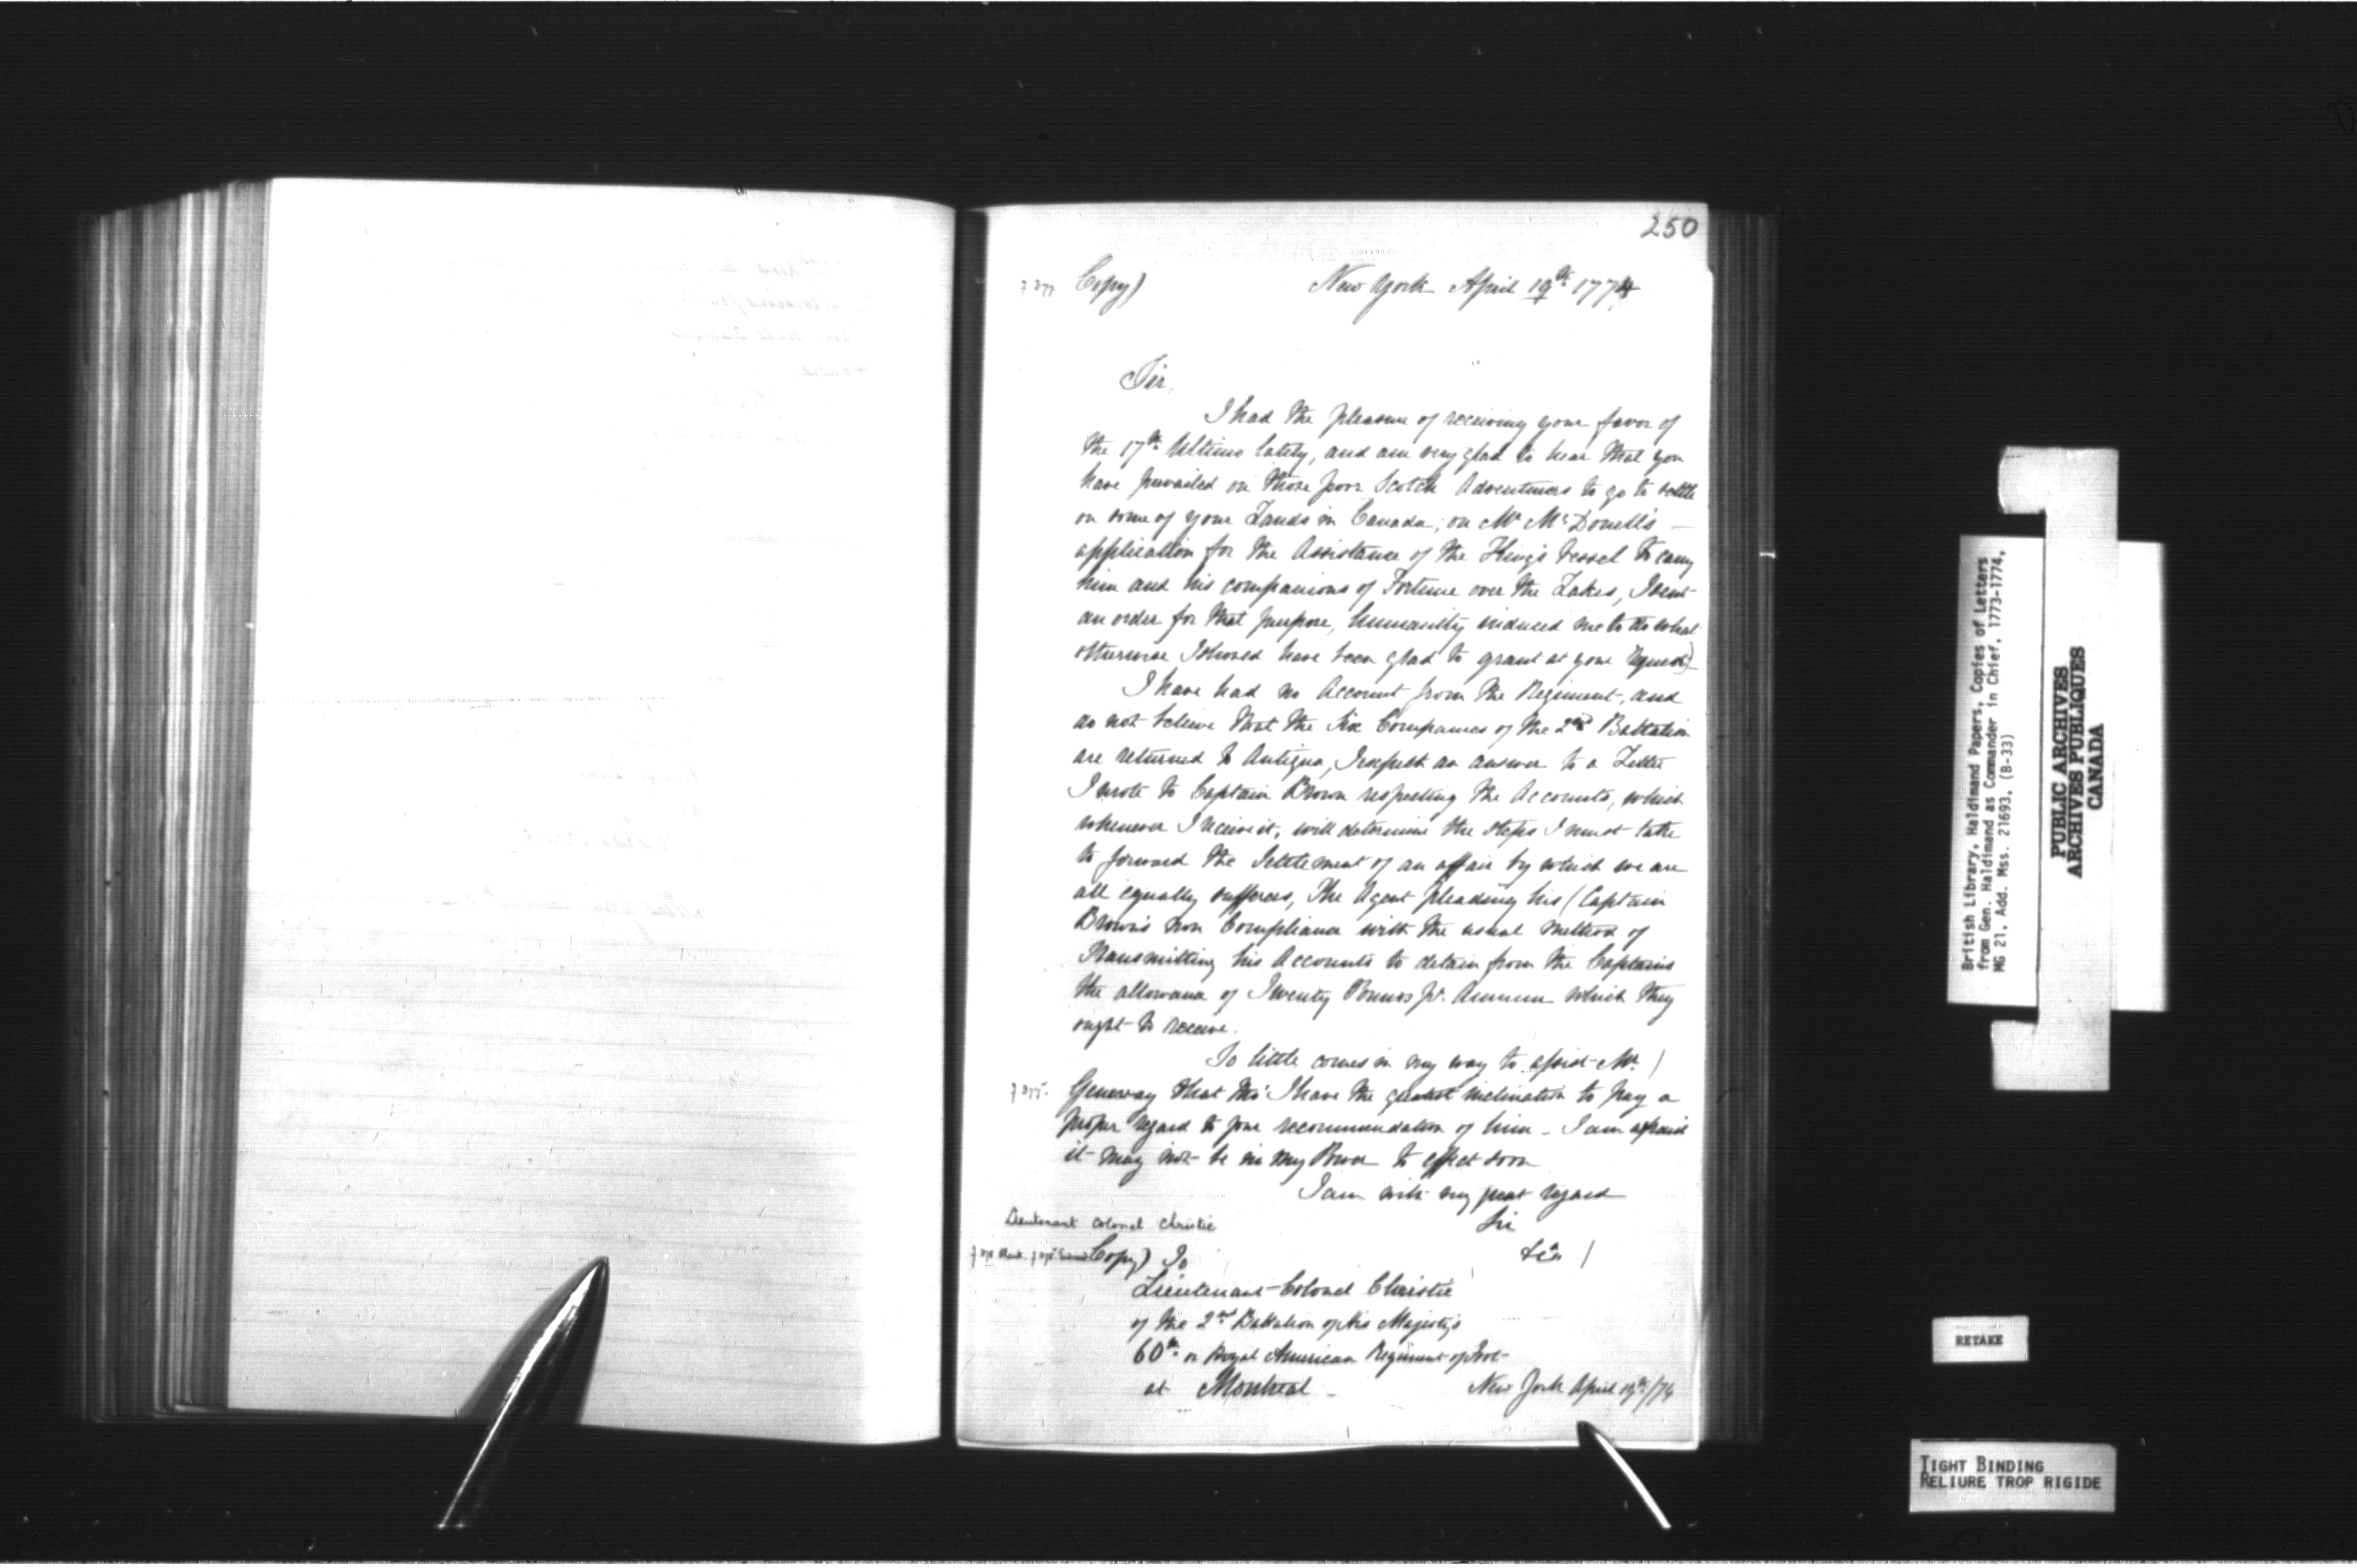 250
Copy) New York April 19th 1774
Sir,
I had the pleasure of receiving your favor of
the 17th Ultimo lately, and am very glad to hear that you
have prevailed on those poor Scotch Adventurers to go to settle
on some of your Lands in Canada; on Mr McDonell's
application for the Assistance of the King's vessel to carry
him and his companions of Fortune over the Lakes, I sent
an order for that purpose, humanity induced me to do what
otherwise I should have been glad to grant at your request)
I have had no Account from the Regiment, and
do not believe that the Six Companies of the 2nd Battalion
are returned to Antigua, I expect an answer to a Letter
I wrote to Captain Brown respecting the Accounts, which
whenever I receive it, will determine the steps I must take
to forward the Settlement of an affair by which we are
all equally sufferers, The Agent pleading his (Captain
Brown's non Compliance with the usual method of
Transmitting his Accounts to detain from the Captains
the allowance of Twenty Pounds pr. Annum which they
ought to receive.
So little comes in my way to assist Mr. /
that tho' I have the greatest inclination to pay a
proper regard to your recommendation of him - I am afraid
it may not be in my Power to effect soon
I am with very great regard
Lieutenant Colonel Christie Sir
Copy) To &ca /
Lieutenant-Colonel Christie
of the 2nd Battalion of His Majesty's
60th or Royal American Regiment of Foot
at Montreal - New York April 19th/74
British Library, Haldimand Papers, Copies of Letters
from Gen. Haldimand as Commander in Chief, 1773-1774,
MG 21, Add. Mss. 21693, (B-33)
PUBLIC ARCHIVES
ARCHIVES PUBLIQUES
CANADA
RETAKE
TIGHT BINDING
RELIURE TROP RIGIDE